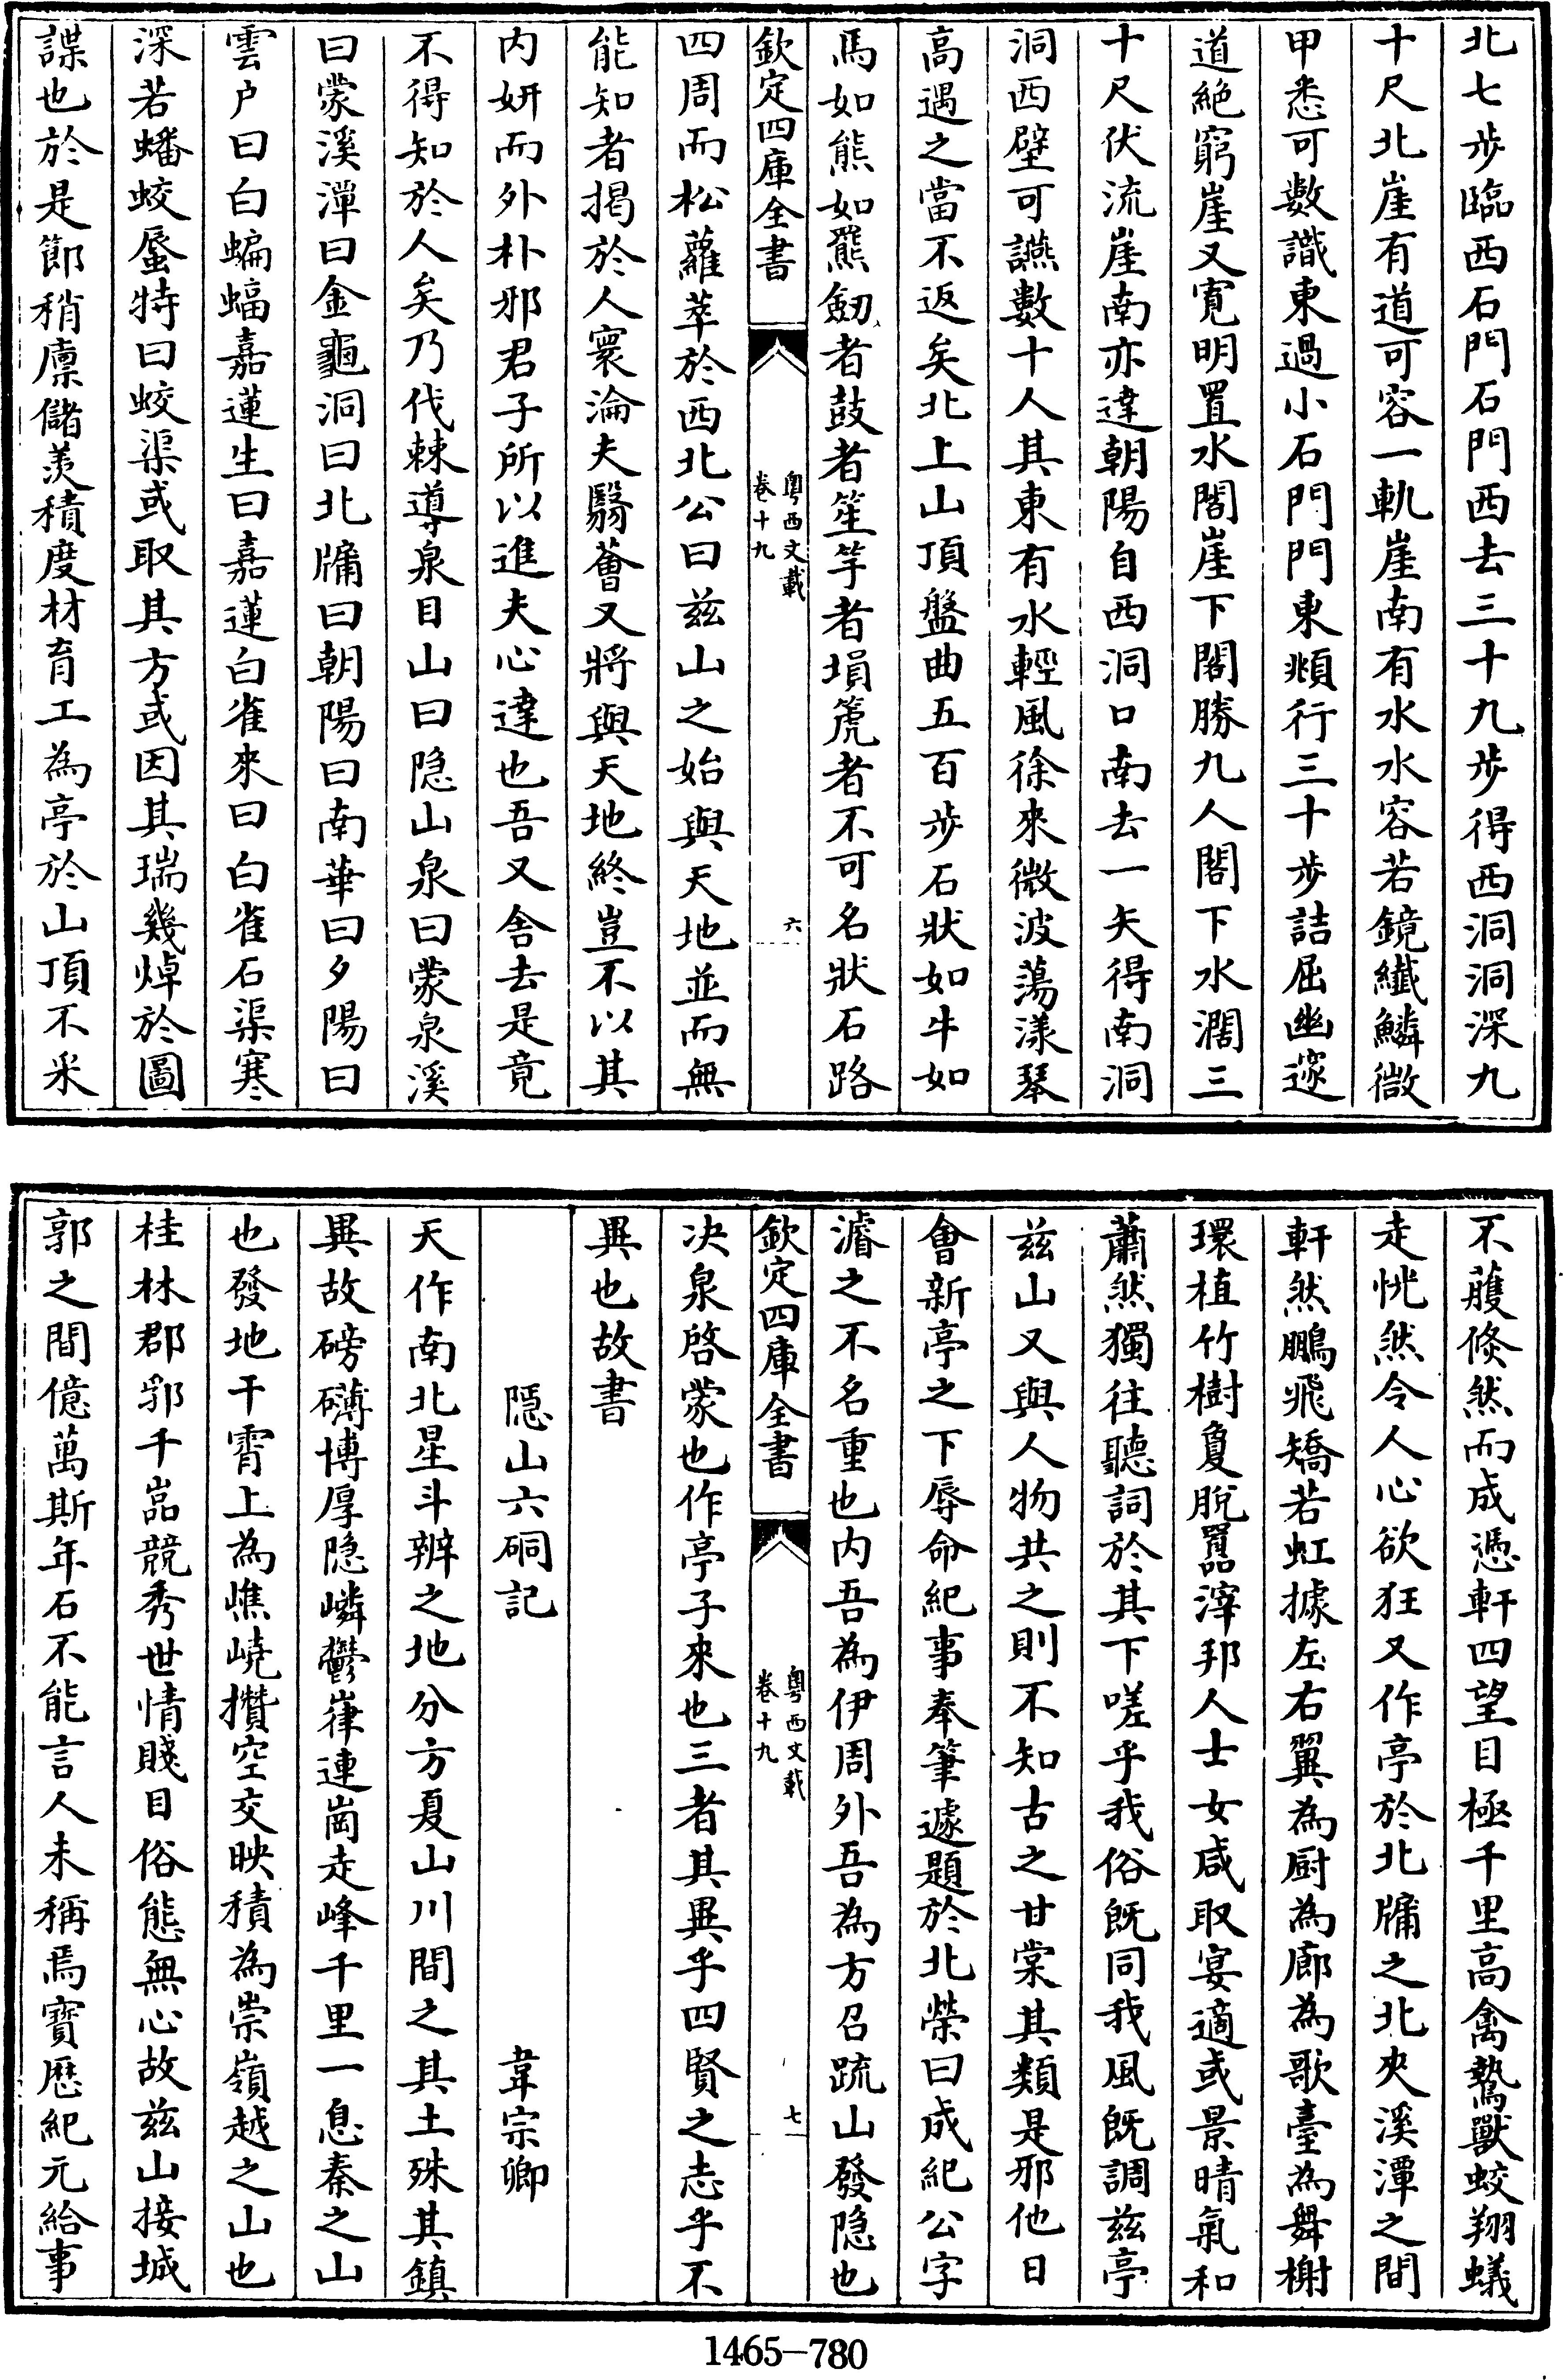 北七步臨西石門石門西去三十九步得西洞洞深九
十尺北崖有道可容一軌崖南有水水容若鏡纎鱗微
甲悉可數識東過小石門門東頫行三十步詰屈幽邃
道絶窮崖又寛明置水閣崖下閣勝九人閣下水濶三
十尺伏流崖南亦達朝陽自西洞口南去一矢得南洞
洞西壁可讌數十人其東有水輕風徐來微波蕩漾琴
高遇之當不返矣北上山頂盤曲五百步石狀如牛如
馬如熊如羆劒者鼓者笙竽者塤箎者不可名狀石路
欽定四庫全書
粤西文載
卷十九
六
四周而松蘿萃於西北公曰兹山之始與天地並而無
能知者揭於人寰淪夫翳薈又將與天地終豈不以其
内妍而外朴邪君子所以進夫心達也吾又舎去是竟
不得知於人矣乃伐棘導泉目山曰隠山泉曰蒙泉溪
曰蒙溪潭曰金龜洞曰北牖曰朝陽曰南華曰夕陽曰
雲户曰白蝙蝠嘉蓮生曰嘉蓮白雀來曰白雀石渠寒
深若蟠蛟蜃特曰蛟渠或取其方或因其瑞幾焯於圖
諜也於是節稍廩儲羨積度材育工為亭於山頂不采
不蒦倐然而成憑軒四望目極千里高禽鷙獸蛟翔蟻
走恍然令人心欲狂又作亭於北牖之北夾溪潭之間
軒然鵬飛矯若虹據左右翼為厨為廊為歌臺為舞榭
環植竹樹夐脫囂滓邦人士女咸取宴適或景晴氣和
蕭然獨往聽詞於其下嗟乎我俗既同我風既調兹亭
兹山又與人物共之則不知古之甘棠其類是邪他日
會新亭之下辱命紀事奉筆遽題於北榮曰成紀公字
濬之不名重也内吾為伊周外吾為方召疏山發隠也
欽定四庫全書
粤西文載
卷十九
七
决泉啓蒙也作亭子來也三者其異乎四賢之志乎不
異也故書
隠山六硐記
韋宗卿
天作南北星斗辨之地分方夏山川間之其土殊其鎮
異故磅礴博厚隠嶙鬱嵂連崗走峰千里一息秦之山
也發地干霄上為憔嶢攢空交映積為崇嶺越之山也
桂林郡郛千嵓競秀世情賤目俗態無心故兹山接城
郭之間億萬斯年石不能言人未稱焉寳厯紀元給事
1465—780